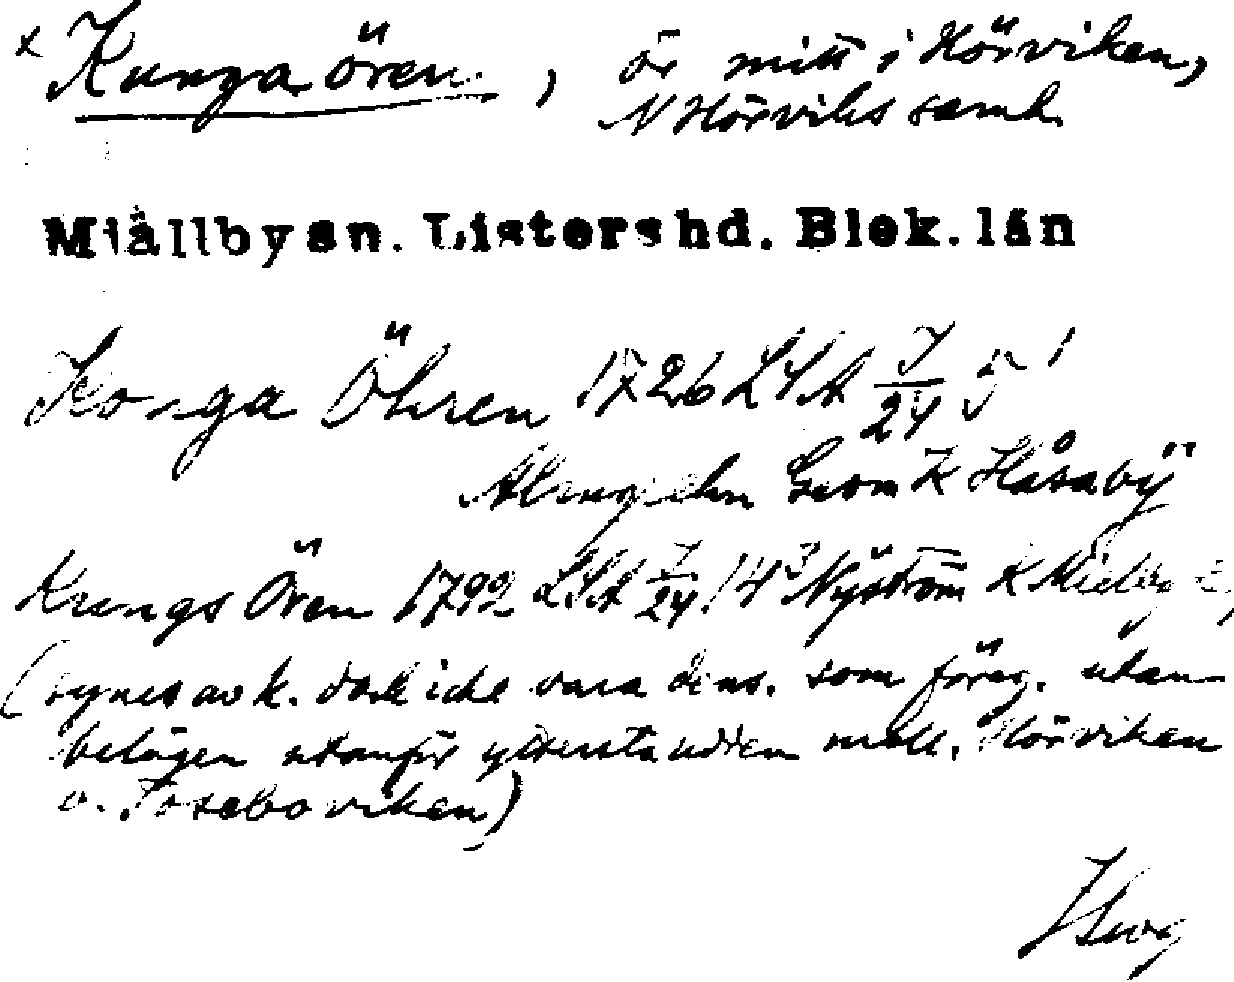 x Kungaören, ör mitt i Hörviken,
N Hörviks samh.
Mjällby sn. Listers hd. Blek. län
Konga Öhren 1726 LSA 7/24 5¹
geom K Håsabÿ
Kungs Ören 1792 LSA 7/24 14³ Nÿström K
(synes av k. dock icke vara dens. som föreg. utan
belägen utanför yttersta udden mell. Hörviken
o. Tosebo viken)